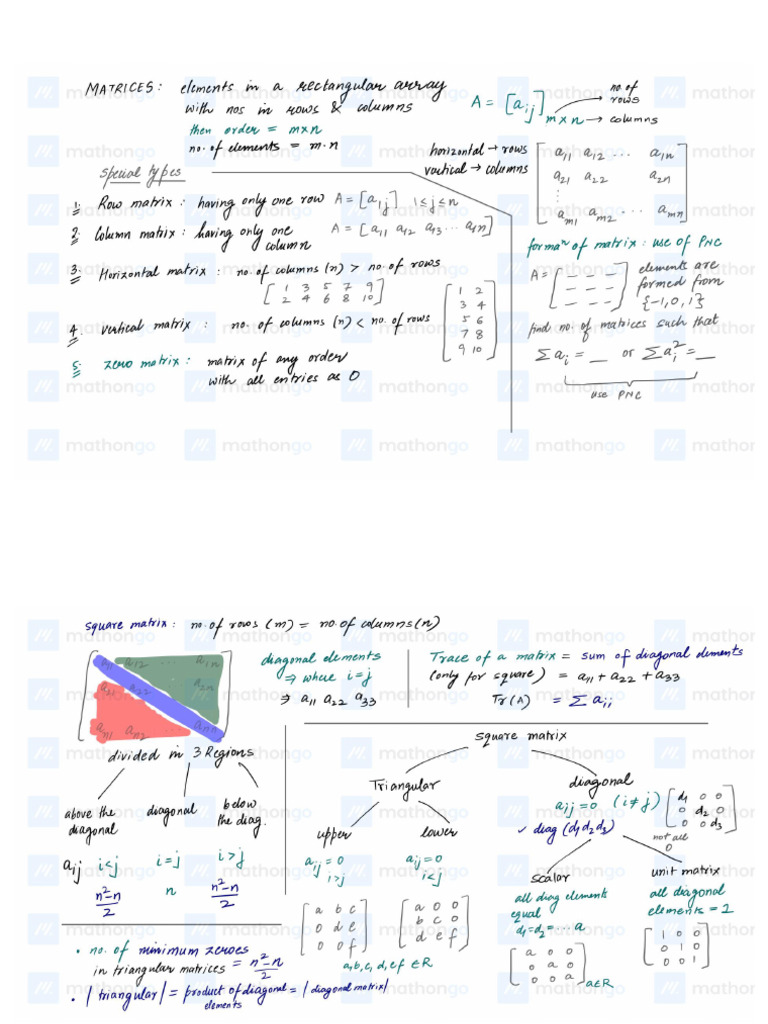 MATRICES: elements in a rectangular array
with nos in rows & columns
then order = m×n
no. of elements = m·n
A = [aij] m×n → columns
no of
→ rows
horizontal → rows
vertical → columns
[a11 a12 ... a1n
a21 a22 a2n
⋮
am1 am2 ... amn]
Special types
1. Row matrix: having only one row A = [a1j] 1≤j≤n
2. Column matrix: having only one
column
A = [a11 a12 a13 ... a1n]
3. Horizontal matrix: no. of columns (n) > no. of rows
[1 3 5 7 9
2 4 6 8 10]
4. vertical matrix: no. of columns (n) < no. of rows
[1 2
3 4
5 6
7 8
9 10]
5. zero matrix: matrix of any order
with all entries as 0
formaⁿ of matrix: use of PNC
A = [— — —
— — —
— — —]
elements are
formed from
{-1,0,1}
find no. of matrices such that
Σai = __ or Σai² = __
use PNC
square matrix: no. of rows (m) = no. of columns (n)
[a11 a12 ... a1n
a21 a22 a2n
an1 an2 ann]
divided in 3 Regions
above the
diagonal
diagonal
below
the diag.
aij i<j i=j i>j
n²-n/2 n n²-n/2
diagonal elements
⇒ where i=j
⇒ a11 a22 a33
Trace of a matrix = sum of diagonal elements
(only for square) = a11 + a22 + a33
Tr(A) = Σ aii
square matrix
Triangular
diagonal
aij = 0 (i≠j)
✓ diag (d1 d2 d3)
[d1 0 0
0 d2 0
0 0 d3]
not all
0
upper
aij = 0
i>j
[a b c
0 d e
0 0 f]
lower
aij = 0
i<j
[a 0 0
b c 0
d e f]
a,b,c,d,e,f ∈ R
scalar
all diag elements
equal
d1 = d2 = ... a
[a 0 0
0 a 0
0 0 a]
a∈R
unit matrix
all diagonal
elements = 1
[1 0 0
0 1 0
0 0 1]
• no. of minimum zeroes
in triangular matrices = n²-n/2
• |triangular| = product of diagonal = |diagonal matrix|
elements
mathongo